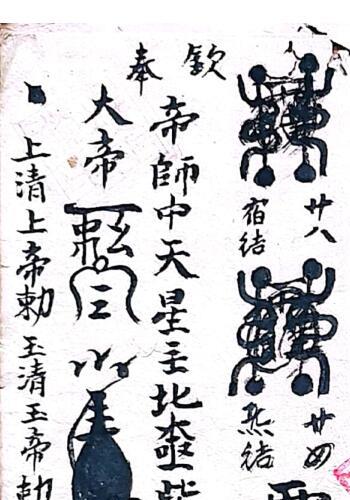 廿八
宿結
廿四
炁結
欽奉
帝師中天星主北極紫
大帝
上清上帝勅玉清玉帝勅